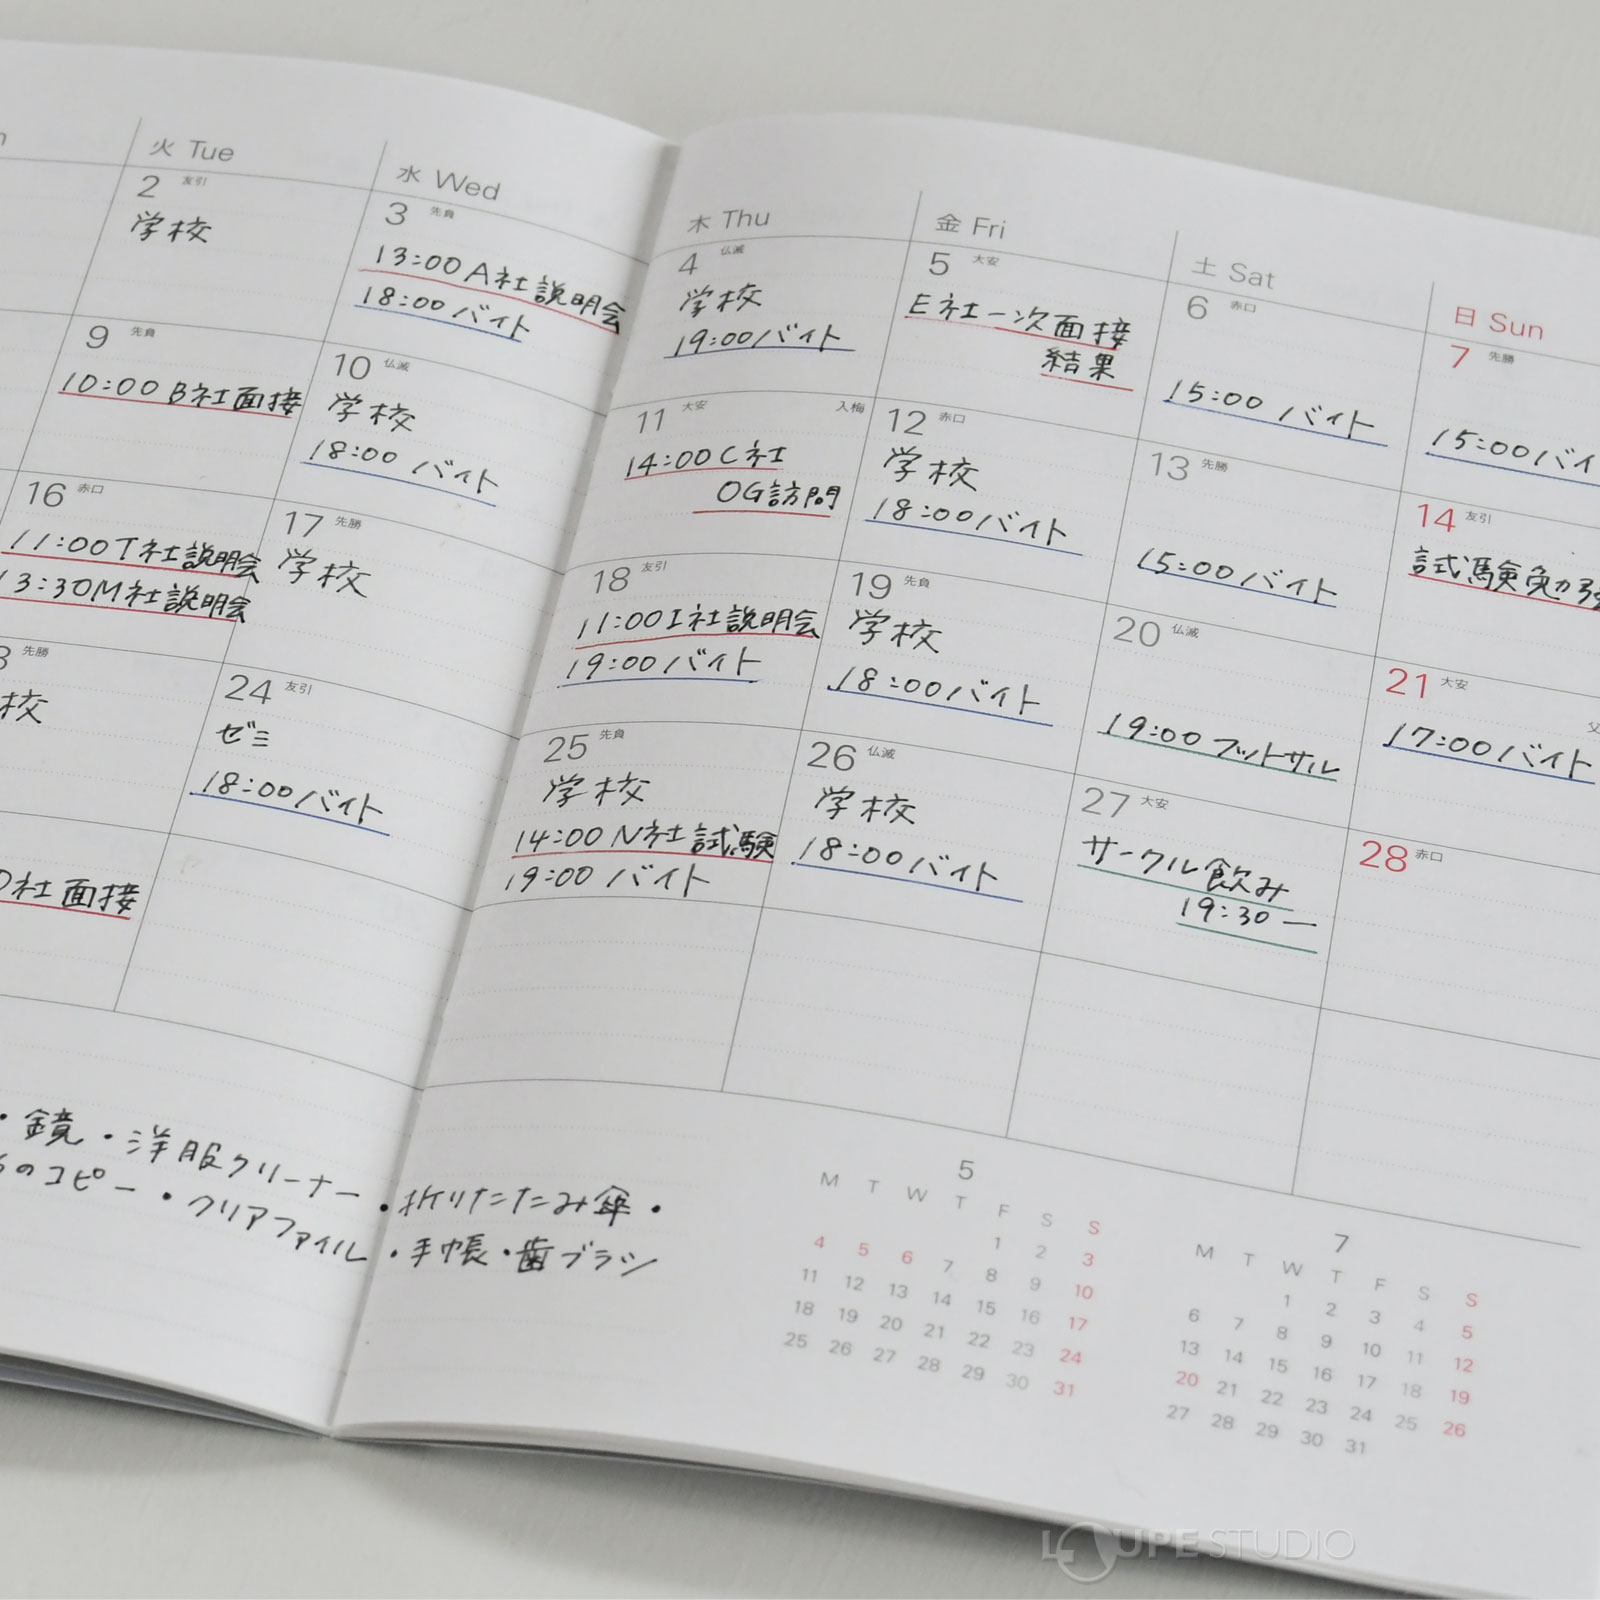 火 Tue
水 Wed
木 Thu
金 Fri
土 Sat
日 Sun
2 友引
学校
3 先負
13:00 A社説明会
18:00 バイト
4 仏滅
学校
19:00 バイト
5 大安
E社一次面接
結果
6 赤口
15:00 バイト
7 先勝
15:00 バイ
9 先負
10:00 B社面接
10 仏滅
学校
18:00 バイト
11 大安 入梅
14:00 C社
OG訪問
12 赤口
学校
18:00 バイト
13 先勝
15:00 バイト
14 友引
試験勉強
16 赤口
11:00 T社説明会
13:30 M社説明会
17 先勝
学校
18 友引
11:00 I社説明会
19:00 バイト
19 先負
学校
18:00 バイト
20 仏滅
19:00 フットサル
21 大安 父
17:00 バイト
先勝
校
24 友引
ゼミ
18:00 バイト
25 先負
学校
14:00 N社試験
19:00 バイト
26 仏滅
学校
18:00 バイト
27 大安
サークル飲み
19:30 ー
28 赤口
社面接
・鏡・洋服クリーナー・折りたたみ傘・
のコピー・クリアファイル・手帳・歯ブラシ
5
M T W T F S S
1 2 3
4 5 6 7 8 9 10
11 12 13 14 15 16 17
18 19 20 21 22 23 24
25 26 27 28 29 30 31
7
M T W T F S S
1 2 3 4 5
6 7 8 9 10 11 12
13 14 15 16 17 18 19
20 21 22 23 24 25 26
27 28 29 30 31
LOUPE STUDIO